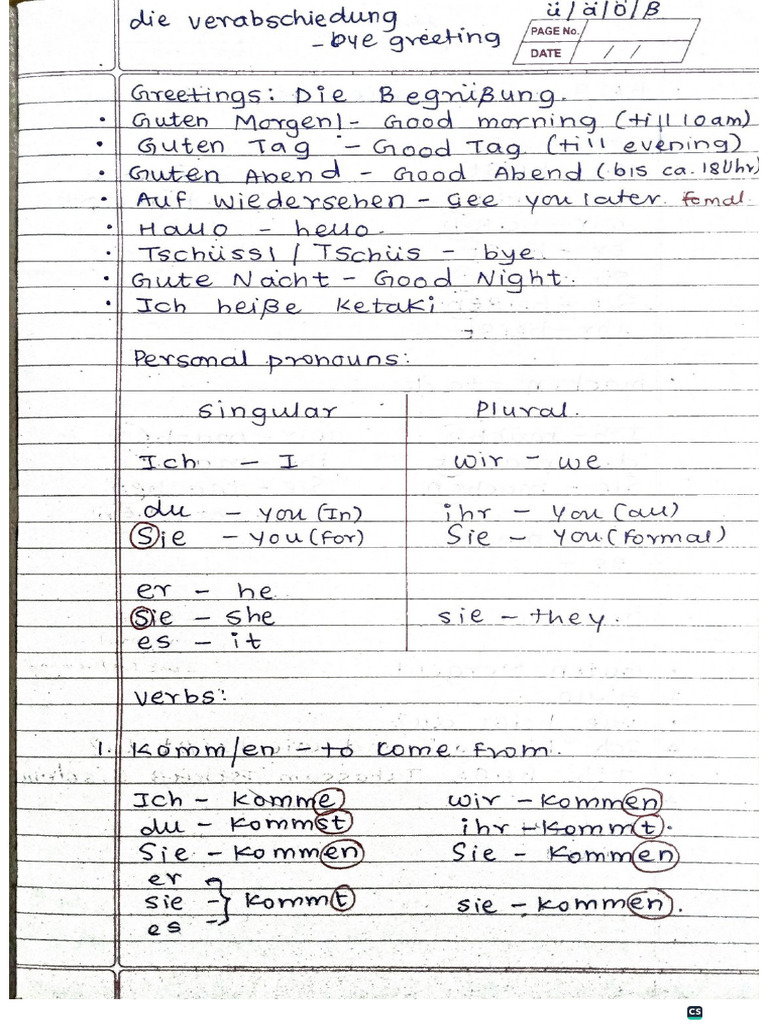 die verabschiedung
- bye greeting
ü / ä / ö / ß
PAGE No.
DATE / /
Greetings: Die Begrüßung.
• Guten Morgen! - Good morning (till 10am)
• Guten Tag - Good Tag (till evening)
• Guten Abend - Good Abend (bis ca. 18 Uhr)
• Auf Wiedersehen - See you later. fomal
• Hallo - hello.
• Tschüssl / Tschüs - bye.
• Gute Nacht - Good Night.
• Ich heiße Ketaki
Personal pronouns:
Singular Plural.
Ich - I wir - we
du - you (In) ihr - you (all)
Sie - you (For) Sie - you (Formal)
er - he
Sie - she sie - they.
es - it
verbs:
1. Komm/en - to come from.
Ich - komme wir - kommen
du - kommst ihr - kommt.
Sie - kommen Sie - kommen
er
sie - } kommt sie - kommen.
es
CS